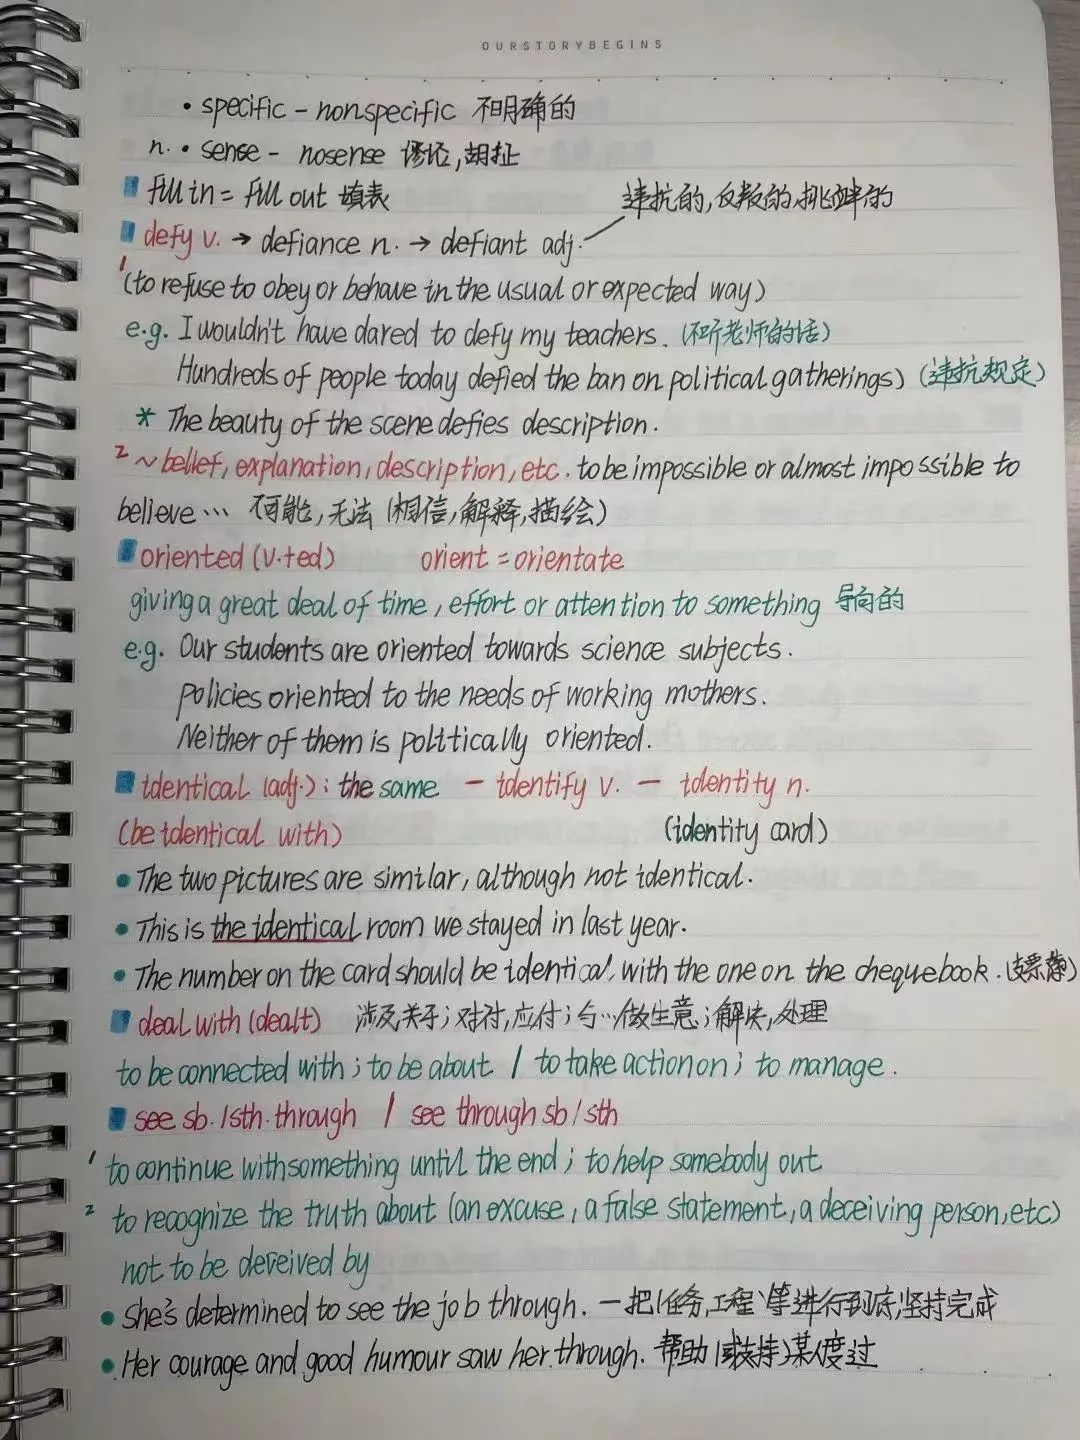 OURSTORYBEGINS
• specific - nonspecific 不明确的
n. • sense - nosense 谬论,胡扯
fill in = fill out 填表
违抗的,反叛的,挑衅的
defy v. → defiance n. → defiant adj.
1 (to refuse to obey or behave in the usual or expected way)
e.g. I wouldn't have dared to defy my teachers. (不听老师的话)
Hundreds of people today defied the ban on political gatherings) (违抗规定)
* The beauty of the scene defies description.
2 ~ belief, explanation, description, etc. to be impossible or almost impossible to
believe … 不可能,无法 (相信,解释,描绘)
oriented (v.+ed) orient = orientate
giving a great deal of time, effort or attention to something 导向的
e.g. Our students are oriented towards science subjects.
policies oriented to the needs of working mothers.
Neither of them is politically oriented.
identical (adj.): the same - identify v. - identity n.
(be identical with) (identity card)
• The two pictures are similar, although not identical.
• This is the identical room we stayed in last year.
• The number on the card should be identical with the one on the chequebook. (支票簿)
deal with (dealt) 涉及关于;对付,应付;与…做生意;解决,处理
to be connected with; to be about / to take action on; to manage.
see sb./sth. through / see through sb/sth
1 to continue with something until the end; to help somebody out
2 to recognize the truth about (an excuse, a false statement, a deceiving person, etc)
not to be deceived by
• She's determined to see the job through. 一把(任务,工程)等进行到底,坚持完成
• Her courage and good humour saw her through. 帮助(或支持)某人度过